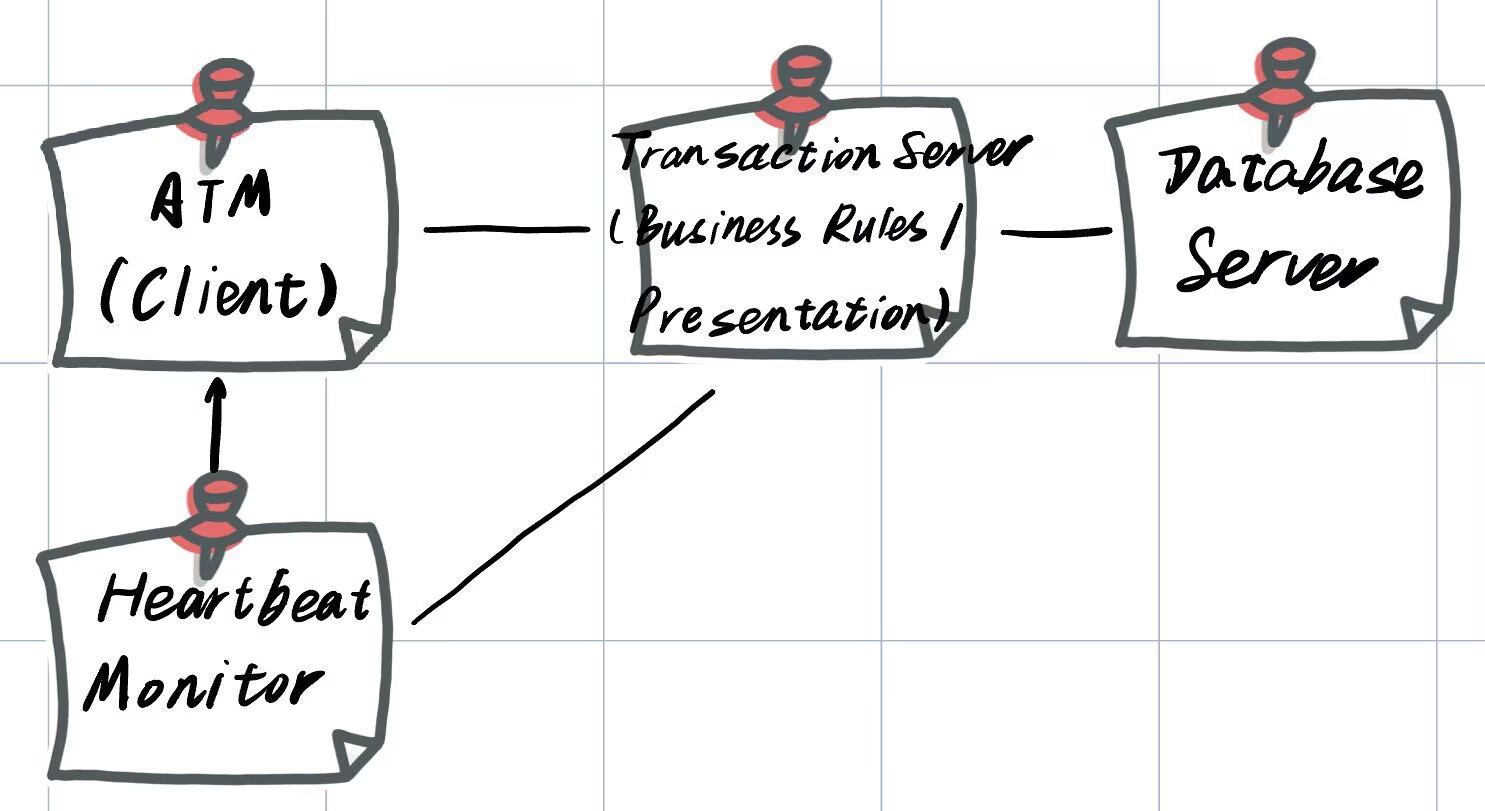 ATM
(Client)
Transaction Server
(Business Rules /
Presentation)
Database
Server
Heartbeat
Monitor